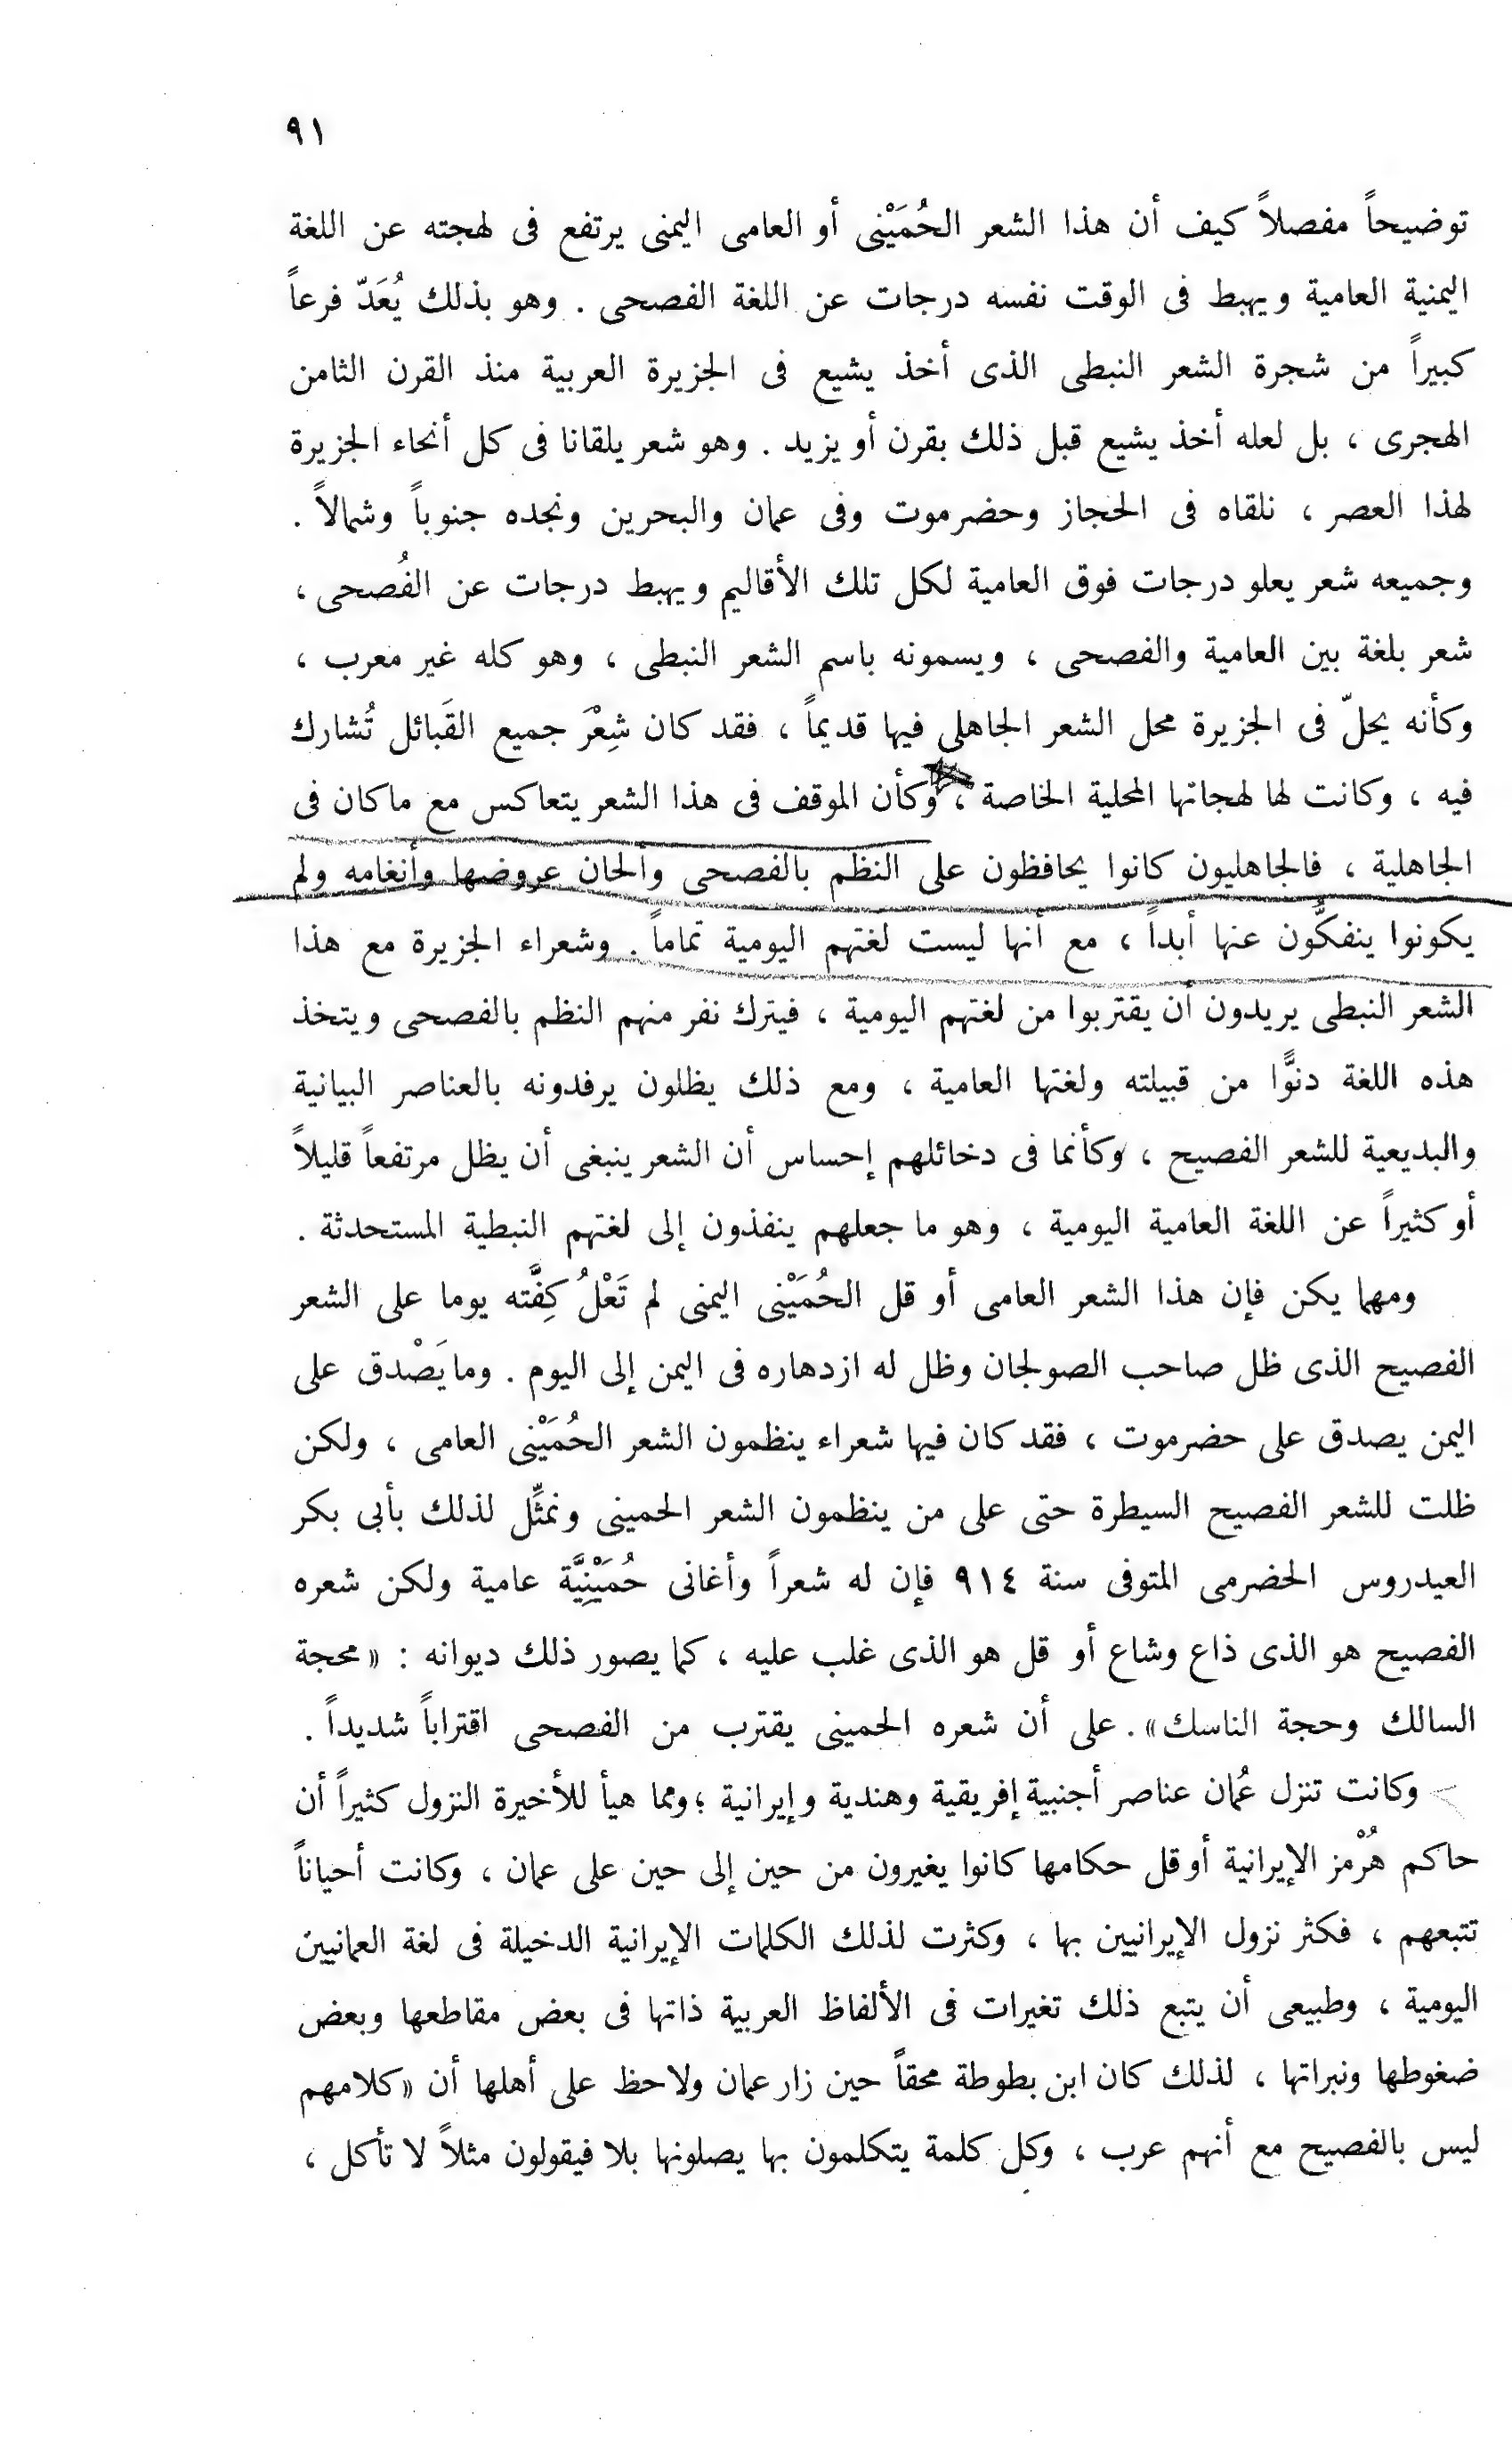 ٩١
توضيحاً مفصلاً كيف أن هذا الشعر الحُمَيْنى أو العامى اليمنى يرتفع فى لهجته عن اللغة
اليمنية العامية ويهبط فى الوقت نفسه درجات عن اللغة الفصحى . وهو بذلك يُعَدّ فرعاً
كبيراً من شجرة الشعر النبطى الذى أخذ يشيع فى الجزيرة العربية منذ القرن الثامن
الهجرى ، بل لعله أخذ يشيع قبل ذلك بقرن أو يزيد . وهو شعر يلقانا فى كل أنحاء الجزيرة
لهذا العصر ، نلقاه فى الحجاز وحضرموت وفى عمان والبحرين ونجده جنوباً وشمالاً .
وجميعه شعر يعلو درجات فوق العامية لكل تلك الأقاليم ويهبط درجات عن الفُصحى ،
شعر بلغة بين العامية والفصحى ، ويسمونه باسم الشعر النبطى ، وهو كله غير معرب ،
وكأنه يحلّ فى الجزيرة محل الشعر الجاهلى فيها قديماً ، فقد كان شِعْرَ جميع القَبائل تُشارك
فيه ، وكانت لها لهجاتها المحلية الخاصة ، وكأن الموقف فى هذا الشعر يتعاكس مع ماكان فى
الجاهلية ، فالجاهليون كانوا يحافظون على النظم بالفصحى وألحان عروضها وأنغامه ولم
يكونوا ينفكُّون عنها أبداً ، مع أنها ليست لغتهم اليومية تماماً . وشعراء الجزيرة مع هذا
الشعر النبطى يريدون أن يقتربوا من لغتهم اليومية ، فيترك نفر منهم النظم بالفصحى ويتخذ
هذه اللغة دنوًّا من قبيلته ولغتها العامية ، ومع ذلك يظلون يرفدونه بالعناصر البيانية
والبديعية للشعر الفصيح ، وكأنما فى دخائلهم إحساس أن الشعر ينبغى أن يظل مرتفعاً قليلاً
أو كثيراً عن اللغة العامية اليومية ، وهو ما جعلهم ينفذون إلى لغتهم النبطية المستحدثة .
ومهما يكن فإن هذا الشعر العامى أو قل الحُمَيْنى اليمنى لم تَعْلُ كِفَّته يوما على الشعر
الفصيح الذى ظل صاحب الصولجان وظل له ازدهاره فى اليمن إلى اليوم . وما يَصْدق على
اليمن يصدق على حضرموت ، فقد كان فيها شعراء ينظمون الشعر الحُمَيْنى العامى ، ولكن
ظلت للشعر الفصيح السيطرة حتى على من ينظمون الشعر الحمينى ونمثِّل لذلك بأبى بكر
العيدروس الحضرمى المتوفى سنة ٩١٤ فإن له شعراً وأغانى حُمَيْنِيَّة عامية ولكن شعره
الفصيح هو الذى ذاع وشاع أو قل هو الذى غلب عليه ، كما يصور ذلك ديوانه : « محجة
السالك وحجة الناسك» . على أن شعره الحمينى يقترب من الفصحى اقتراباً شديداً .
وكانت تنزل عُمان عناصر أجنبية إفريقية وهندية وإيرانية ؛ ومما هيأ للأخيرة النزول كثيراً أن
حاكم هُرْمز الإيرانية أو قل حكامها كانوا يغيرون من حين إلى حين على عمان ، وكانت أحياناً
تتبعهم ، فكثر نزول الإيرانيين بها ، وكثرت لذلك الكلمات الإيرانية الدخيلة فى لغة العمانيين
اليومية ، وطبيعى أن يتبع ذلك تغيرات فى الألفاظ العربية ذاتها فى بعض مقاطعها وبعض
ضغوطها ونبراتها ، لذلك كان ابن بطوطة محقاً حين زار عمان ولاحظ على أهلها أن « كلامهم
ليس بالفصيح مع أنهم عرب ، وكل كلمة يتكلمون بها يصلونها بلا فيقولون مثلاً لا تأكل ،